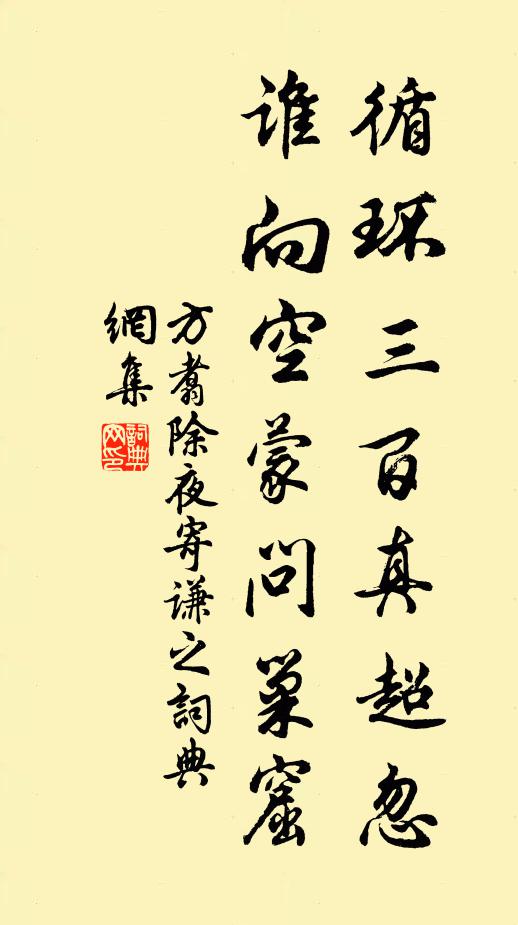 循环三百真超忽
谁向空蒙问巢窟
方翥除夜寄謙之詞典
網集
詞典
网印